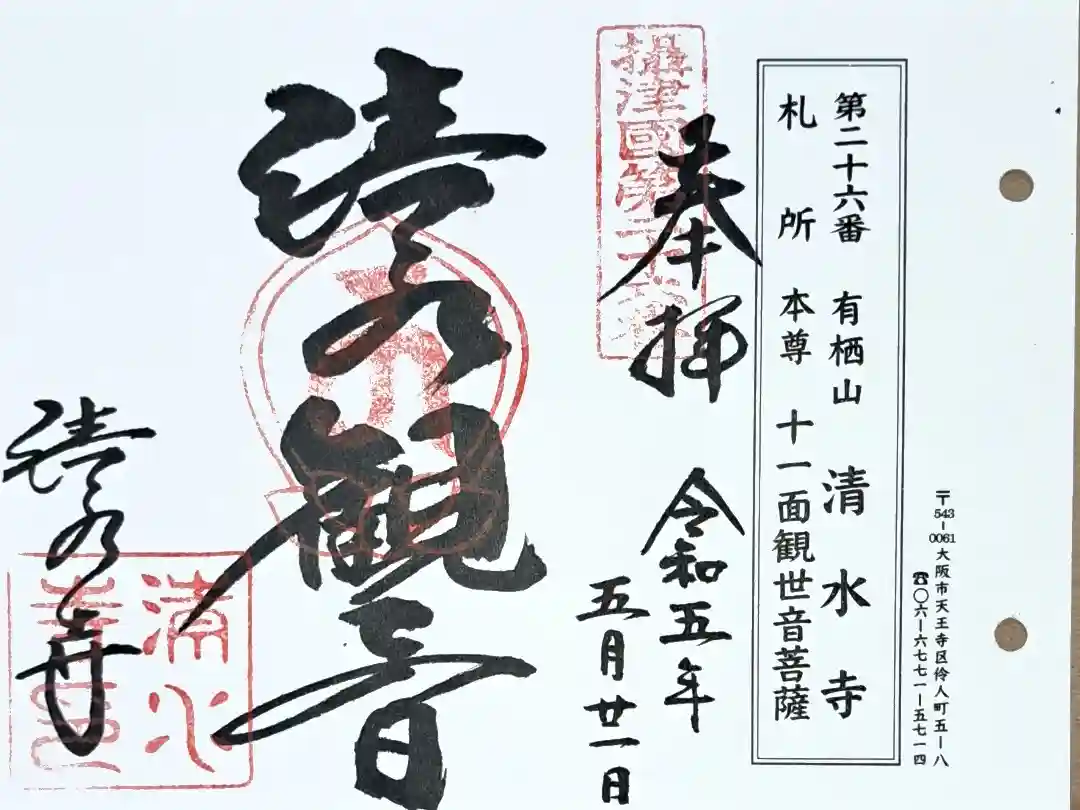 〒543-0061 大阪市天王寺区伶人町五-八
☎〇六-六七七一-五七一四
第二十六番 有栖山 清水寺
札所本尊 十一面観世音菩薩
攝津國第二十六番
奉拝
令和五年
五月廿一日
清水観音
清水寺
清水
寺印